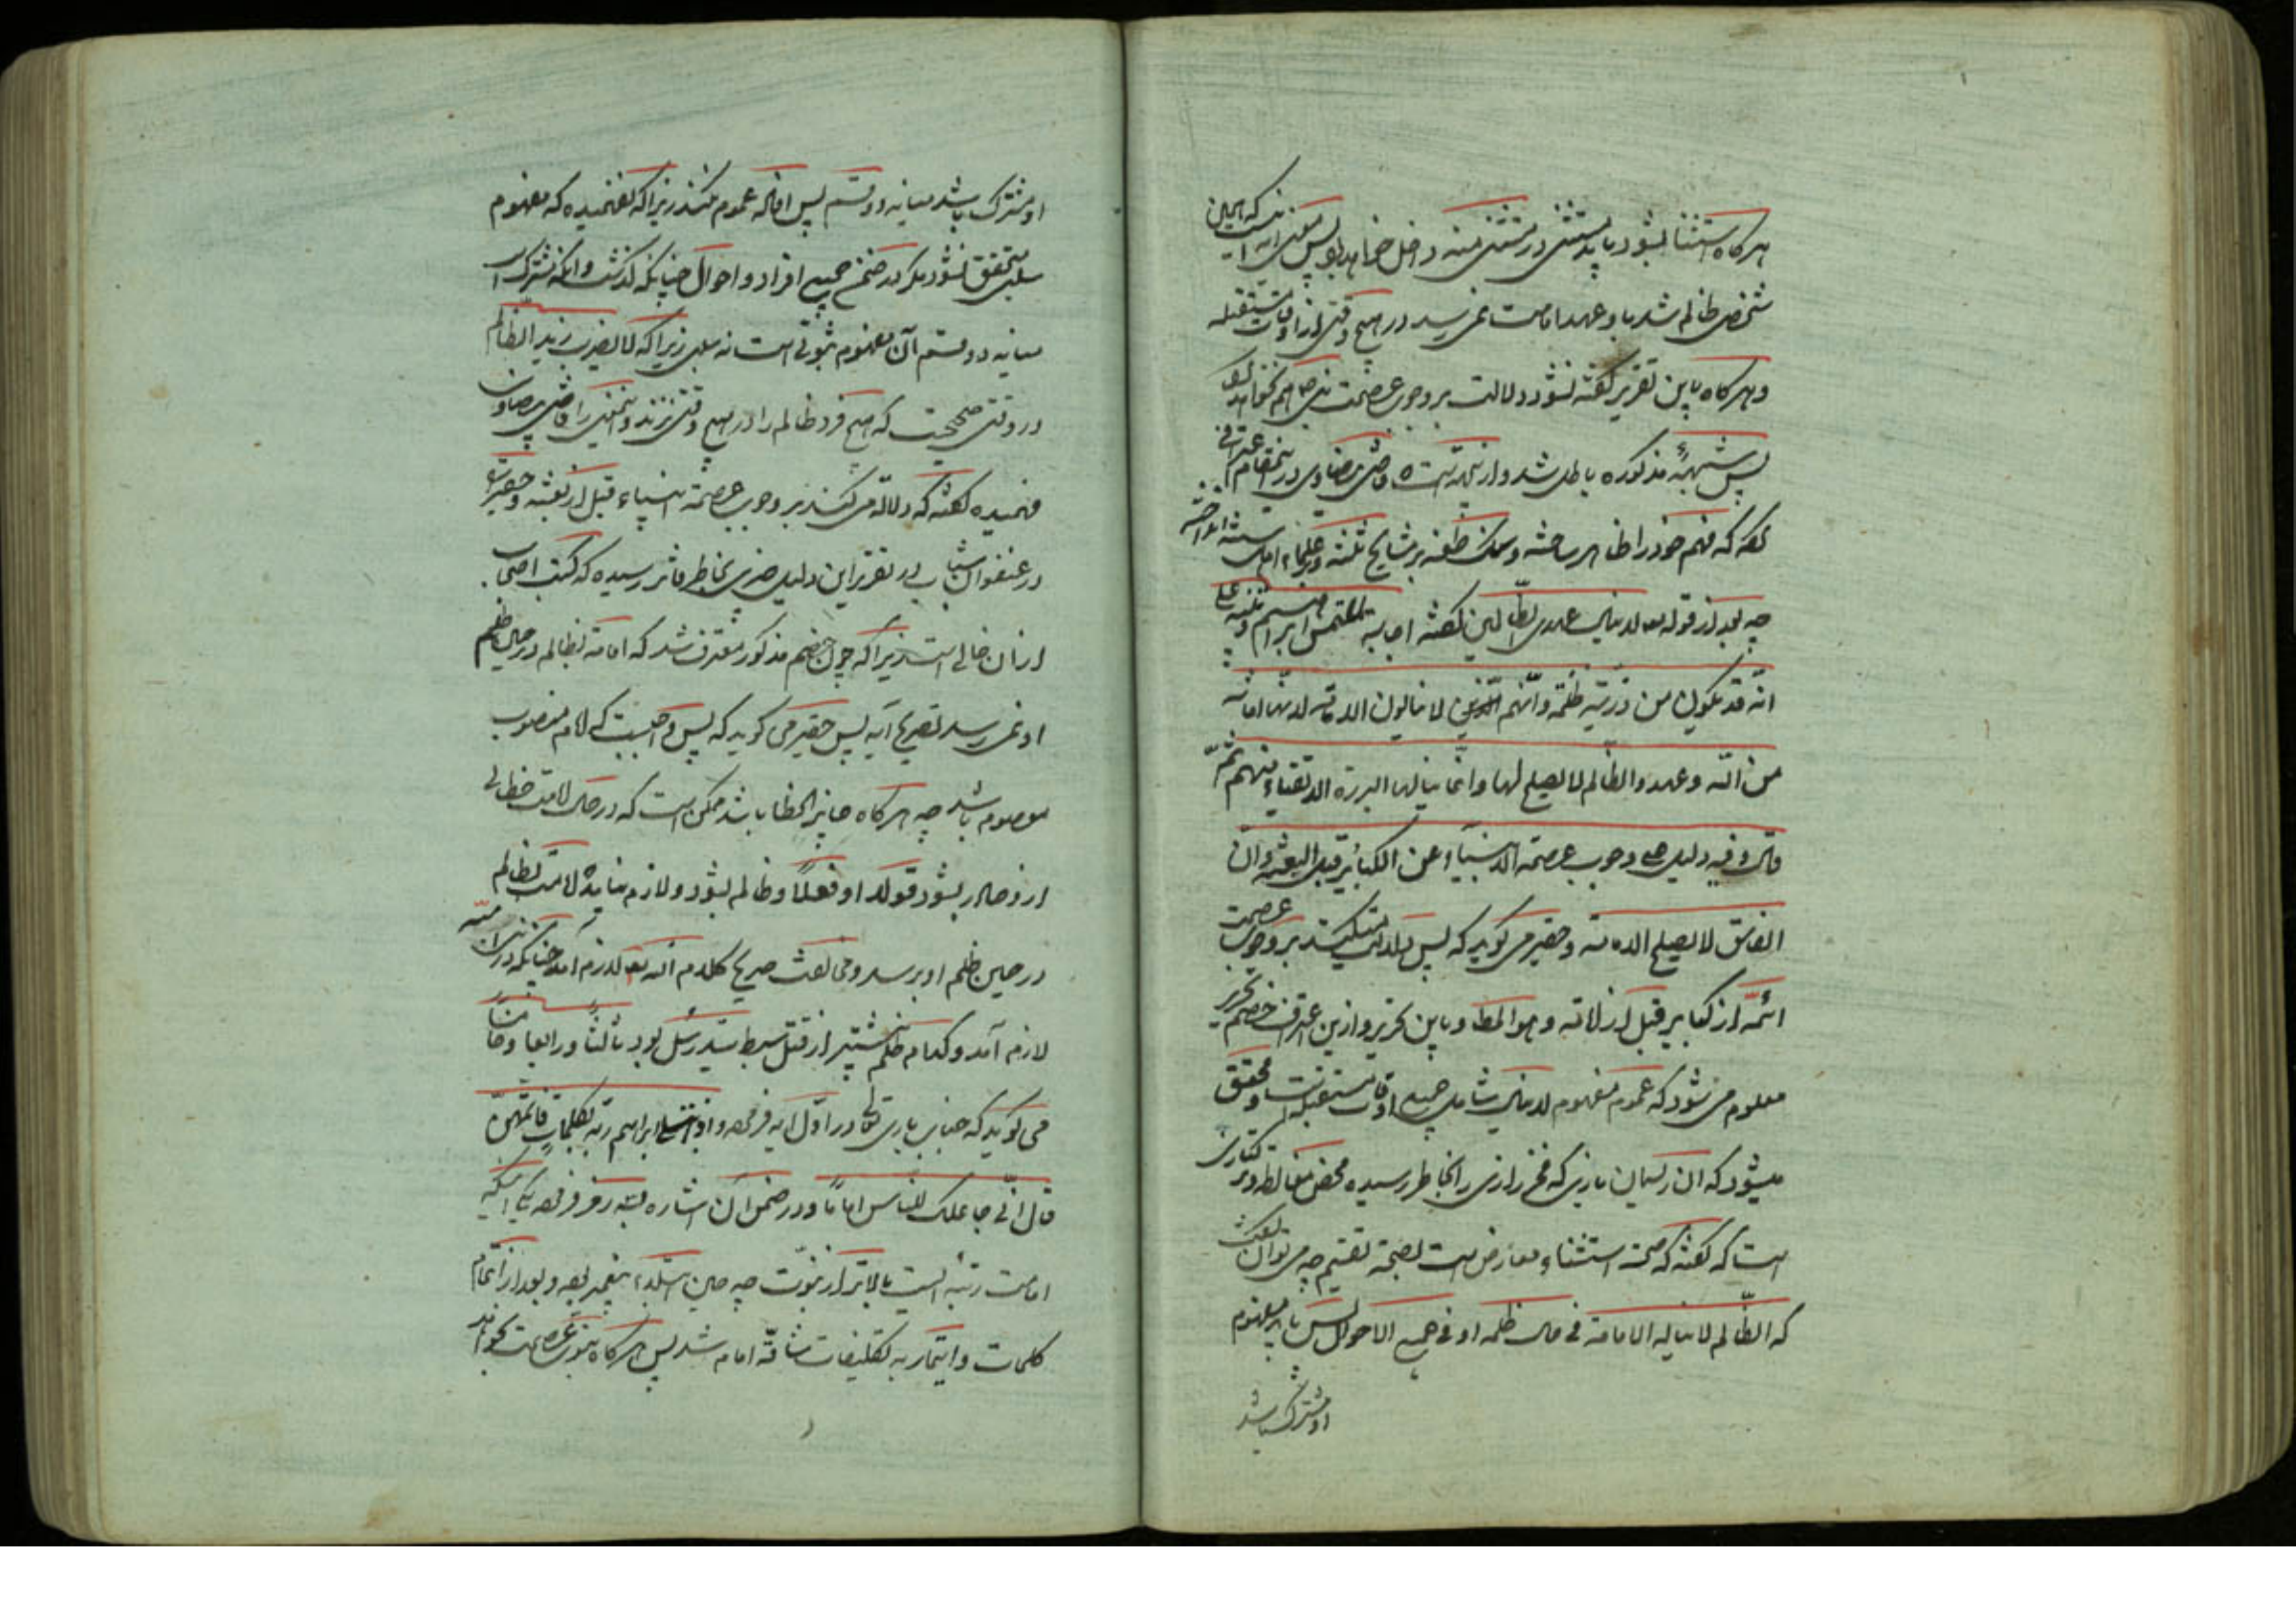 هرگاه استثنا بشود باید مستثنی در مستثنی منه داخل خواهد بود پس معنی آیه اینست که همین
شخصی ظالم شد باو عهد امامت نمی رسد در هیچ وقتی از اوقات مستقبله
و هرگاه باین تقریر گفته نشود دلالت بر وجوب عصمت نبی هم نخواهد
پس شبههٔ مذکوره باطل شد و قاضی بیضاوی در
گفته که فهم خود را ظاهر ساخته و طعنه بر مشایخ ثلثه و علماء
چه بعد از قوله تعالی لاینال عهدی الظالمین گفته اجابه الی ملتمس ابراهیم و تنبیه علی
انّه قد یکون من ذریته ظلمة وانّهم لا ینالون الامامة لانّها امانة
من الله وعهد والظالم لا یصلح لها وانما ینالها البررة الاتقیاء منهم ثمّ
قال وفیه دلیل علی وجوب عصمة الانبیاء عن الکبائر قبل البعثة وان
الفاسق لا یصلح للامامة و حقیر می گوید که پس دلالت میکند بر وجوب عصمت
ائمّه از کبایر قبل از امامت و هو المط و باین تحریر و ازین اعتراف خصم
معلوم می شود که عموم مفهوم لاینال شامل جمیع اوقات مستقبله است و محقق
میشود که آن که فخر رازی را بخاطر رسیده محض مغالطه
است که گفته که صحة استثناء معارض است بصحة تقسیم چه می توان گفت
که الظالم لا یناله الامامة فی حال ظلمه او فی جمیع الاحوال پس باید مفهوم
او مشترک باشد
او مشترک باشد میانه دو قسم پس افاده عموم نکند زیرا که نفهمیده که مفهوم
سلبی متحقق نشود مگر در ضمن جمیع افراد و احوال چنانکه گذشت و آنکه مشترک است
میانه دو قسم آن مفهوم ثبوتی است نه سلبی زیرا که لا یضرب زید الظالم
در وقتی صحیحست که هیچ فرد ظالم را در هیچ وقتی نزند و همین را قاضی بیضاوی
فهمیده گفته که دلالة می کند بر وجوب عصمة انبیاء قبل از بعثة و حقیر را
در عنفوان شباب در تقریر این دلیل بخاطر فاتر رسیده که کتب اصحاب
از آن خالی است زیرا که چون خصم مذکور معترف شد که امامة بظالم در حین ظلم
او نمی رسد بتصریح آیه پس حقیر می گوید که پس واجبست که امام منصوب
معصوم باشد چه هرگاه جایز الخطا باشد ممکن است که در حال امامت خطائی
ازو صادر بشود قولا او فعلا و ظالم بشود و لازم بیاید که امامت بظالم
در حین ظلم او برسد و مخالفت صریح کلام الله تعالی لازم آمد چنانکه در بنی امیه
لازم آمد و کدام ظلم بیشتر از قتل سبط سید رسل بود ثالثا و رابعا و خامسا
می گوید که جناب باری تعالی در اوّل آیه فرموده و اذ ابتلی ابراهیم ربّه بکلمات فاتمّهنّ
قال انّی جاعلک للناس اماما و در ضمن آن اشاره فرموده یکی اینکه
امامت رتبه ایست بالاتر از نبوّت چه حین ابتلاء پیغمبر بوده و بعد از اتمام
کلمات و ایتمار به تکلیفات شاقّه امام شد پس هرگاه نبوّت عصمت بخواهد